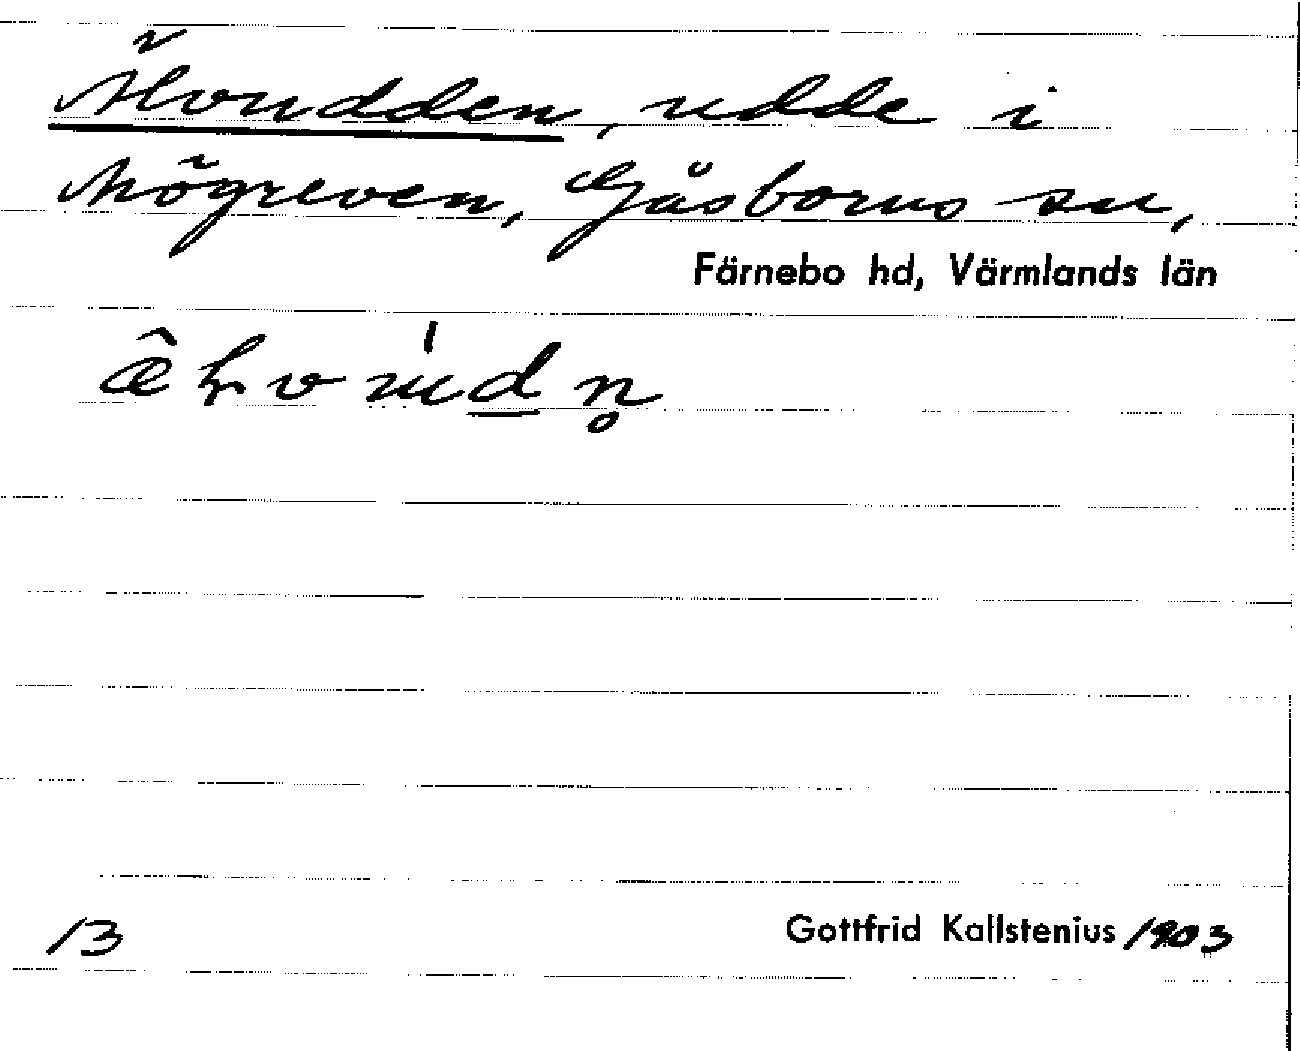 Älvudden, udde i
Högreven, Gåsborns sn,
Färnebo hd, Värmlands län
13
Gottfrid Kallstenius 1903